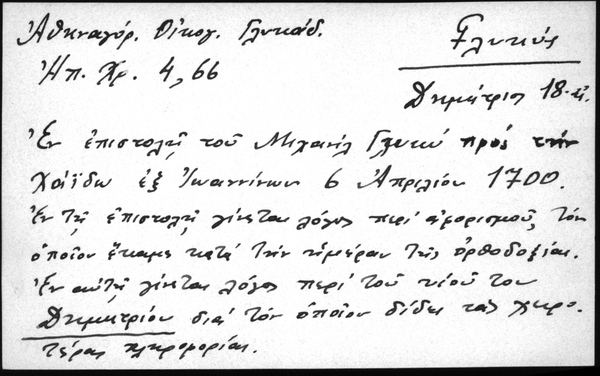 Ἀθηναγόρ. Οἰκογ. Γλυκάδ.
Γλυκύς
Ἠπ. Χρ. 4, 66
Δημήτριος 18-αι.
Ἐν ἐπιστολῇ τοῦ Μιχαήλ Γλυκύ πρός τήν
Χάϊδω ἐξ Ἰωαννίνων 6 Ἀπριλίου 1700.
Ἐν τῇ ἐπιστολῇ γίνεται λόγος περί ἀφορισμοῦ, τόν
ὁποῖον ἔκαμε κατά τήν ἡμέραν τῆς ὀρθοδοξίας.
Ἐν αὐτῇ γίνεται λόγος περί τοῦ υἱοῦ του
Δημητρίου διά τόν ὁποῖον δίδει τάς χειρο-
τέρας πληροφορίας.